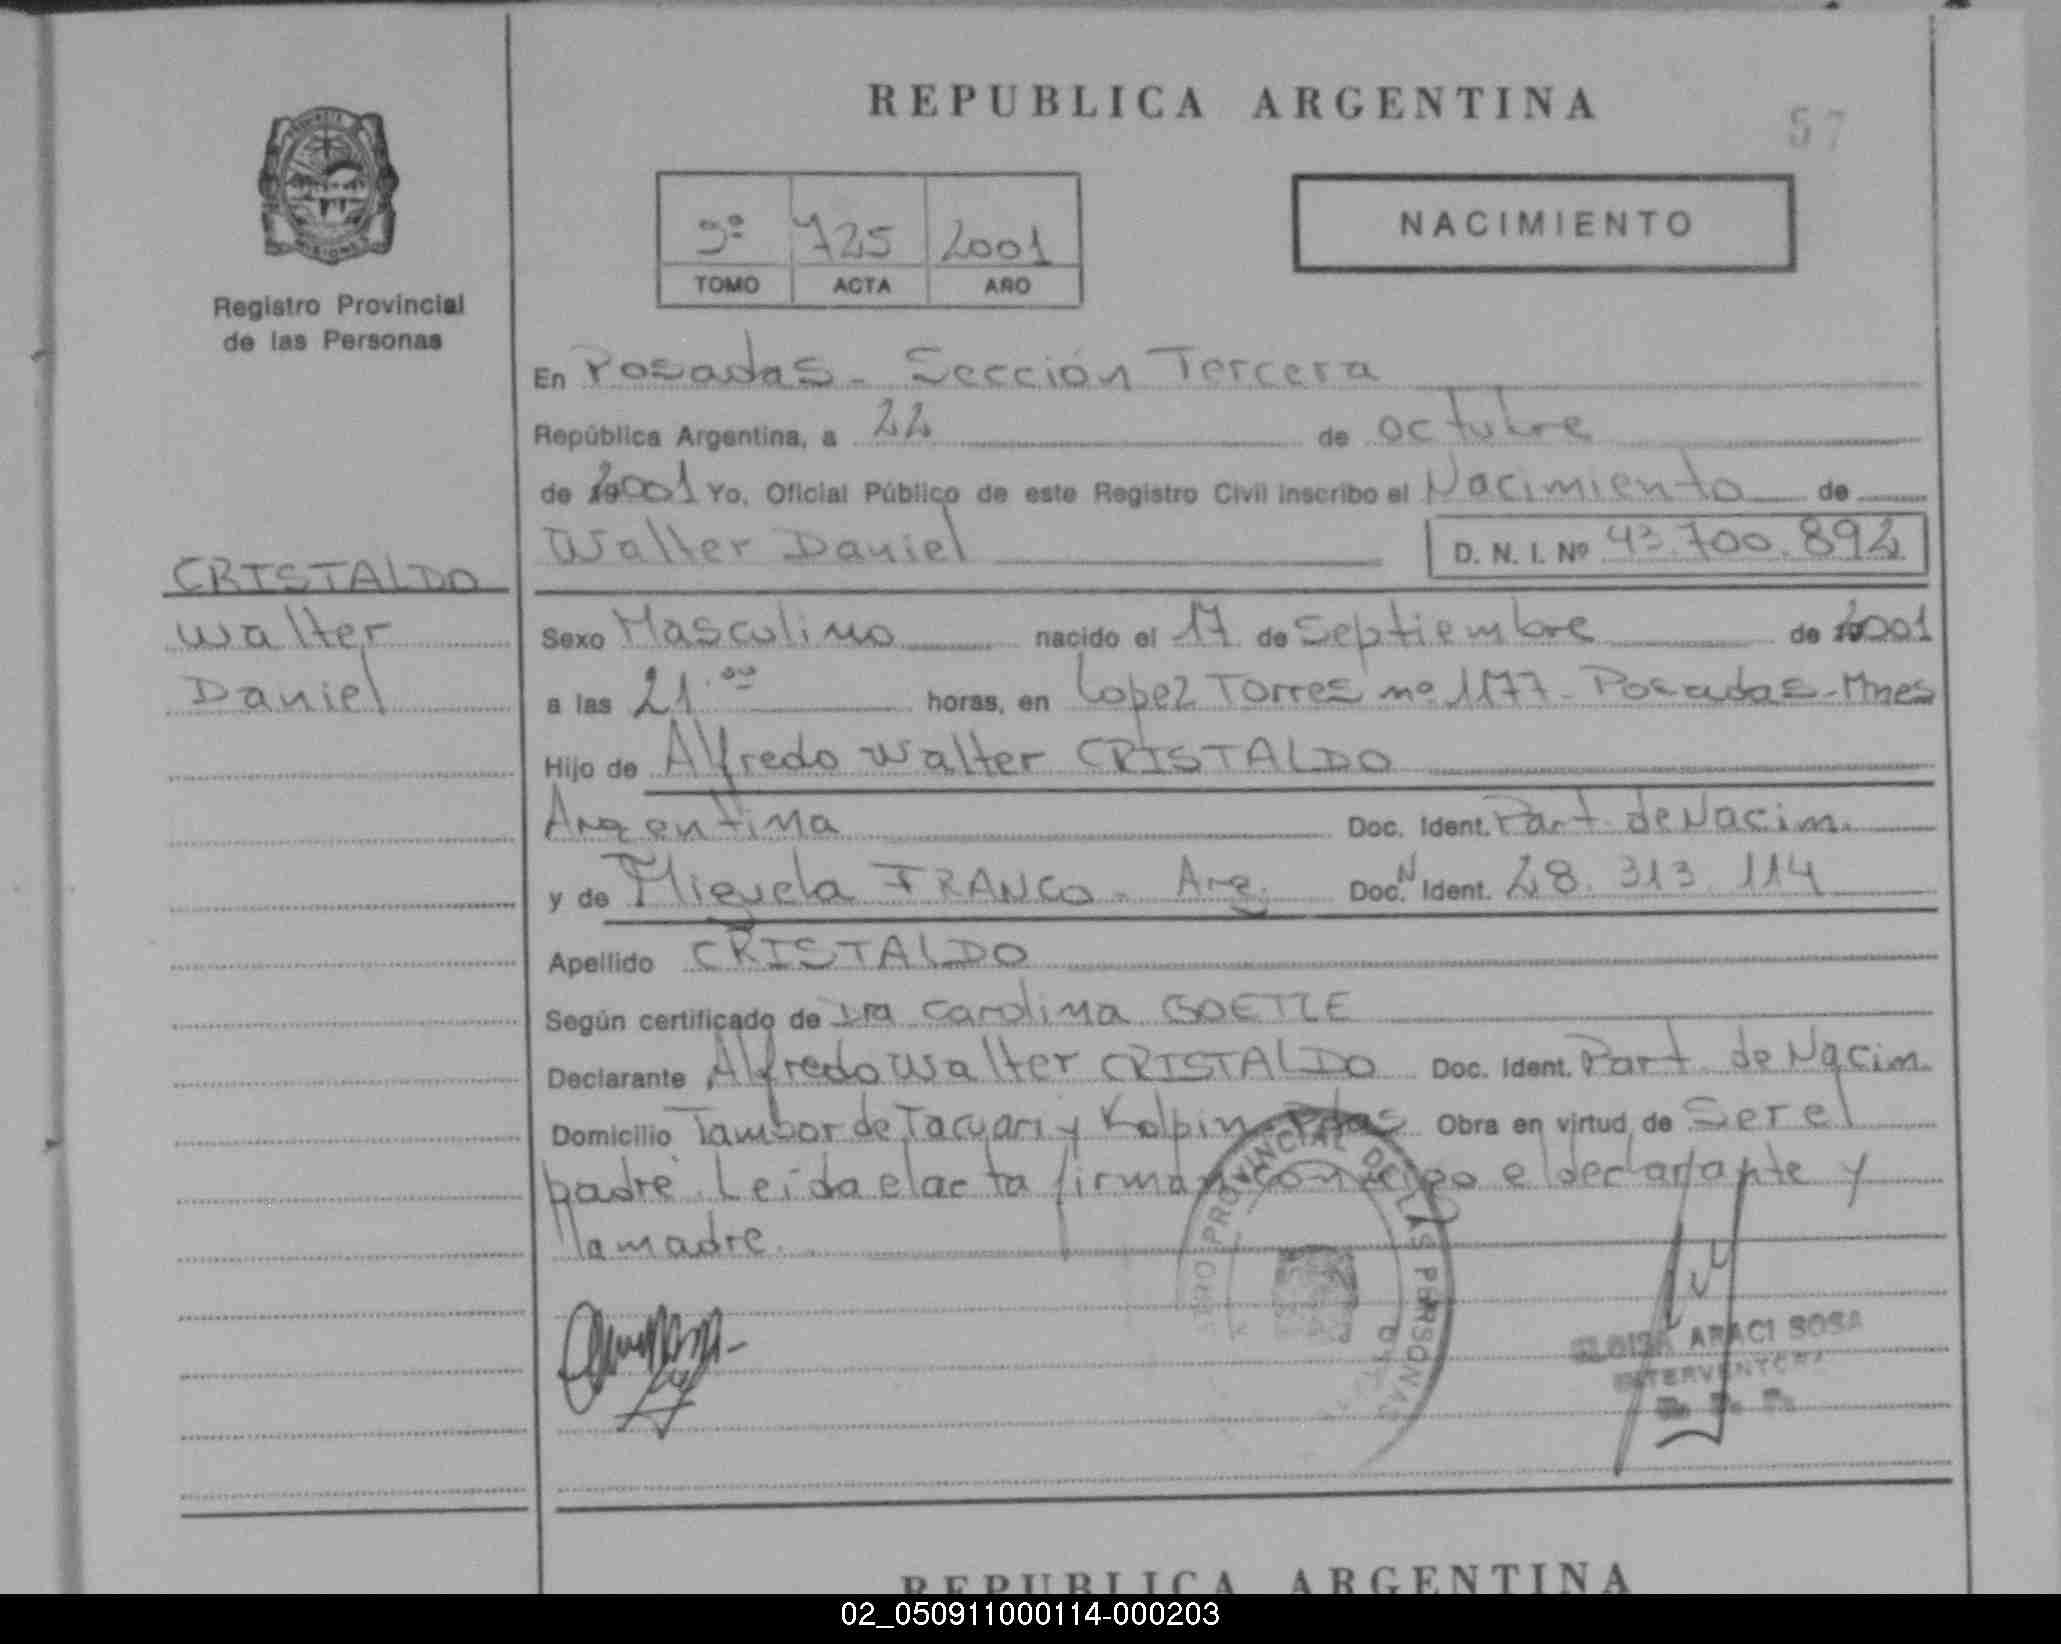 REPUBLICA ARGENTINA
57
Registro Provincial
de las Personas
3º 725 2001
TOMO ACTA AÑO
NACIMIENTO
En Posadas - Sección Tercera
República Argentina, a 22 de octubre
de 2001 Yo, Oficial Público de este Registro Civil inscribo el Nacimiento de
Walter Daniel D. N. I. Nº 43.700.892
CRISTALDO
Walter
Daniel
Sexo Masculino nacido el 17 de Septiembre de 2001
a las 21.00 horas, en Lopez Torres nº 1177 - Posadas - Mnes
Hijo de Alfredo Walter CRISTALDO
Argentina Doc. Ident. Part. de Nacim.
y de Miguela FRANCO - Arg. Doc. N Ident. 28.313.114
Apellido CRISTALDO
Según certificado de Dra Carolina GOETTE
Declarante Alfredo Walter CRISTALDO Doc. Ident. Part. de Nacim.
Domicilio Tambor de Tacuari y Kolpin - Pdas Obra en virtud de Ser el
padre. Leida el acta firman conmigo el declarante y
la madre.
PROVINCIAL DE LAS PERSONAS
ARACI SOSA
INTERVENTORA
REPUBLICA ARGENTINA
02_050911000114-000203